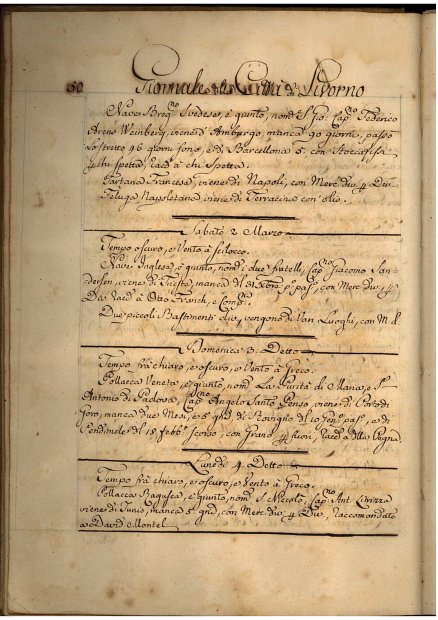 50 Giornale della Città di Livorno
Nave Breg.no Svedese, è giunto, nom.o S. Gio. Cap.no Federico
Areno Weinberg, viene d'Amburgo, manca 90 giorni, passò
lo stretto 46 giorni sono, e di Barcellona 5. con Stoccafissi
chi spetta, Racc.o à chi Spetta.
Tartana Francesa, viene di Napoli, con Merc. div. Div.
Feluga Napoletana viene di Terracina con olio.
Sabato 2 Marzo
Tempo oscuro, e Vento à scilocco.
Nave Inglese, è giunto, nom.i i due fratelli, Cap.no Giacomo San-
dersen, viene di Trieste, manca dl 31 Xbre p.o pas., con Merc. div.
Div. Racc.o à Otto Franch, e Comp.
Due piccoli Bastimenti Div. vengono di Vari Luoghi, con M. d.
Domenica 3. Detto
Tempo frà chiaro, e oscuro, e Vento à Greco.
Pollacca Veneta, è giunto, nom.o La Purità di Maria, e S.
Antonio di Padova, Cap.no Angelo Santo Penso, viene di Porto di
Goro, manca due Mesi, e 5 gni di Rovigno dl 10 Gen. pas., e di
dl 15 febb.o scorso, con Grano fuori, Racc.o à
Lunedì 4 Detto
Tempo frà chiaro, e oscuro, e Vento à Greco.
Pollacca Ragusea, è giunto, nom.o S. Niccolò, Cap.no Ant.
viene di Tunis, manca 5 gni, con Merc. div. Div., Raccomandata
a David Montel